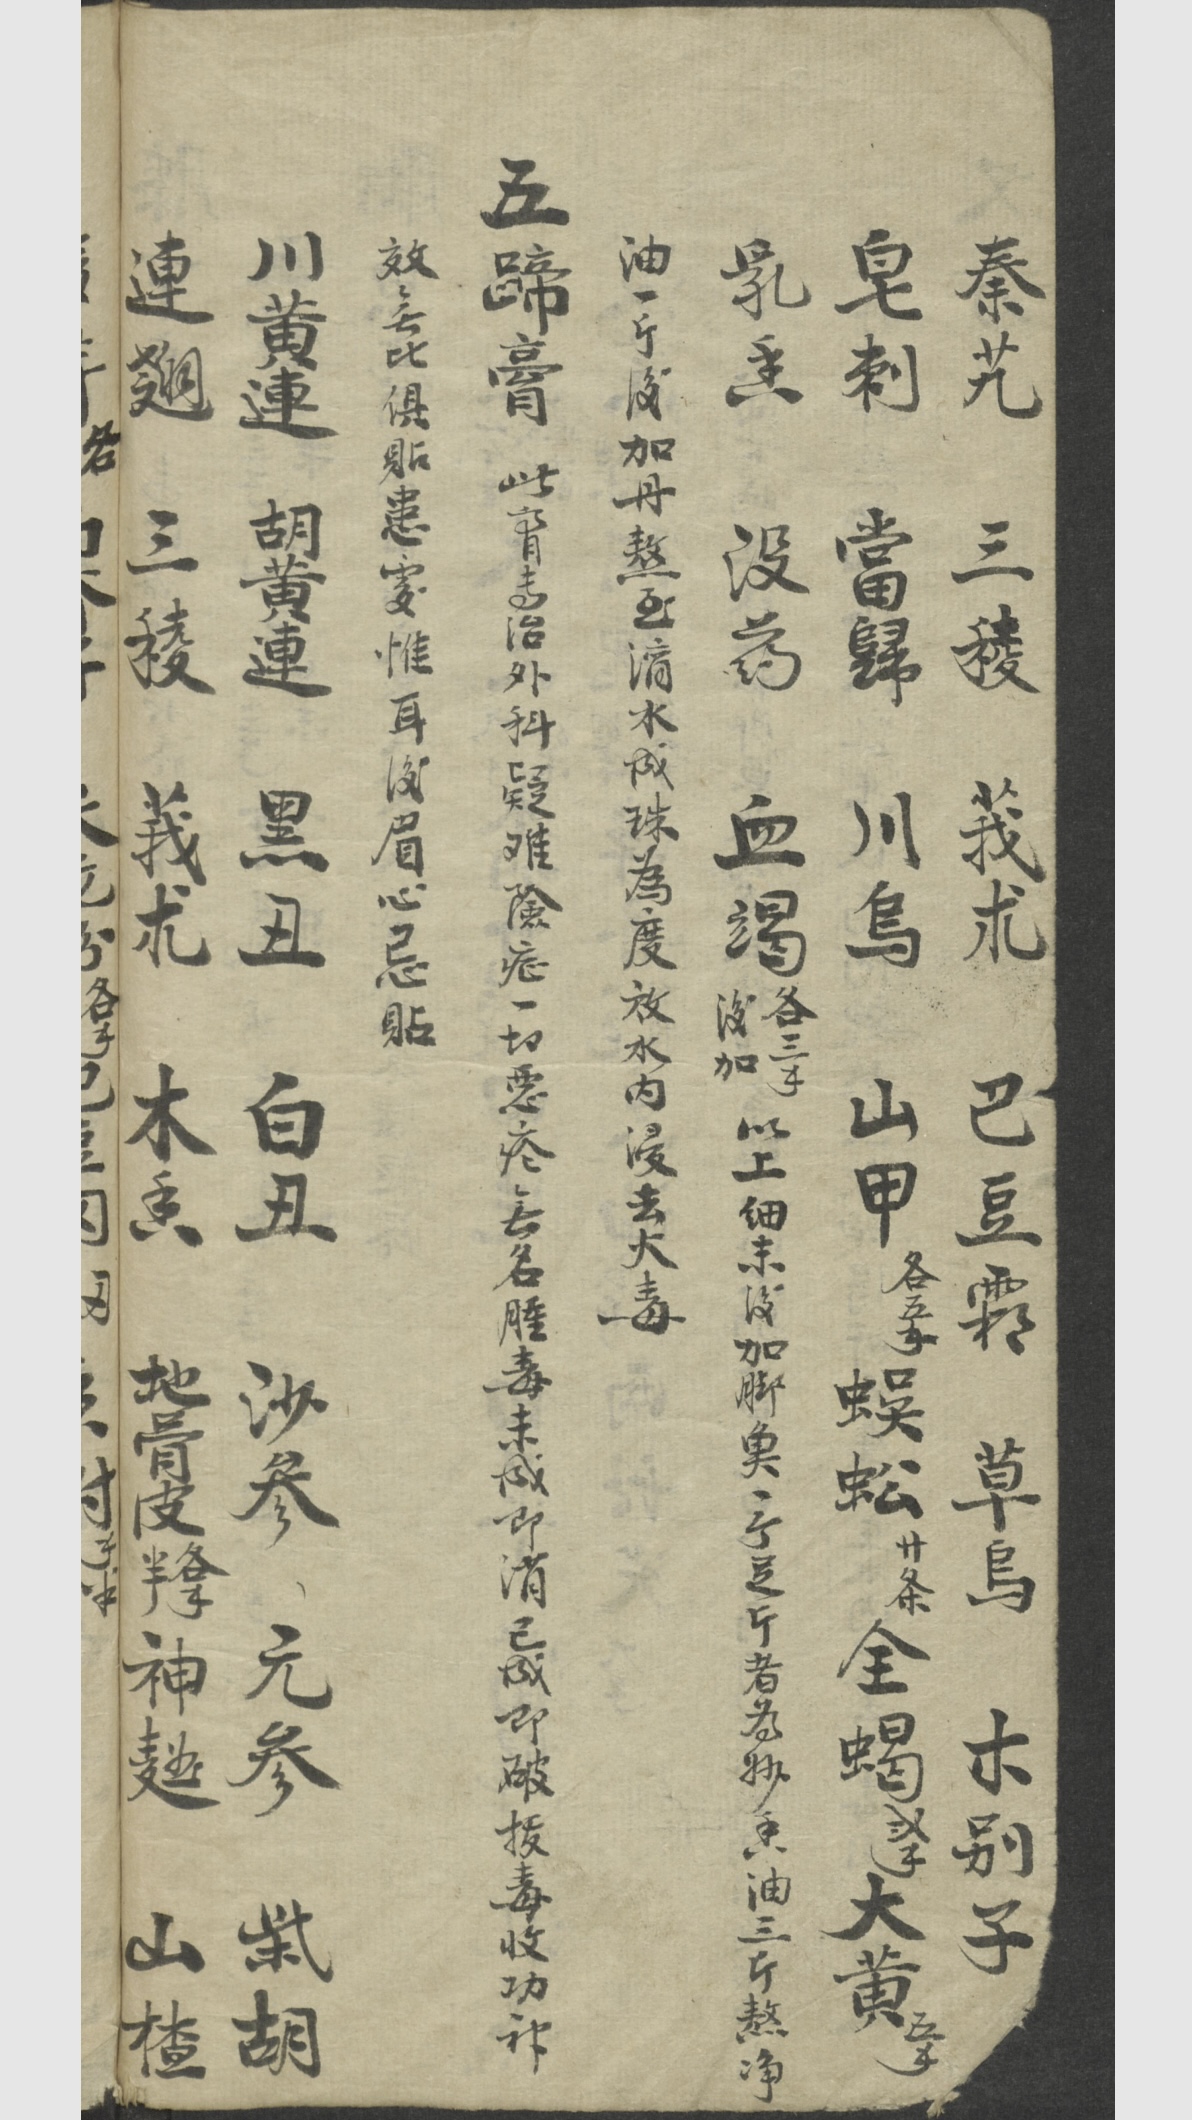 秦艽 三稜 莪朮 巴豆霜 草烏 木別子
皂刺 當歸 川烏 山甲 各五𠂆 蜈蚣 廿条 全蝎 大黄
乳香 没药 血竭 各三 後加 以上細末後加脚魚一个足斤者為妙香油三斤熬净
油一斤後加丹熬至滴水成珠為度放水内浸去火毒
五蹄膏 此膏專治外科疑难險症一切惡疮無名腫毒未成即消已成即破拔毒收功神
效無比俱貼患處惟耳後眉心忌貼
川黄連 胡黄連 黑丑 白丑 沙參 元參 柴胡
連翘 三稜 莪朮 木香 地骨皮 神麯 山楂